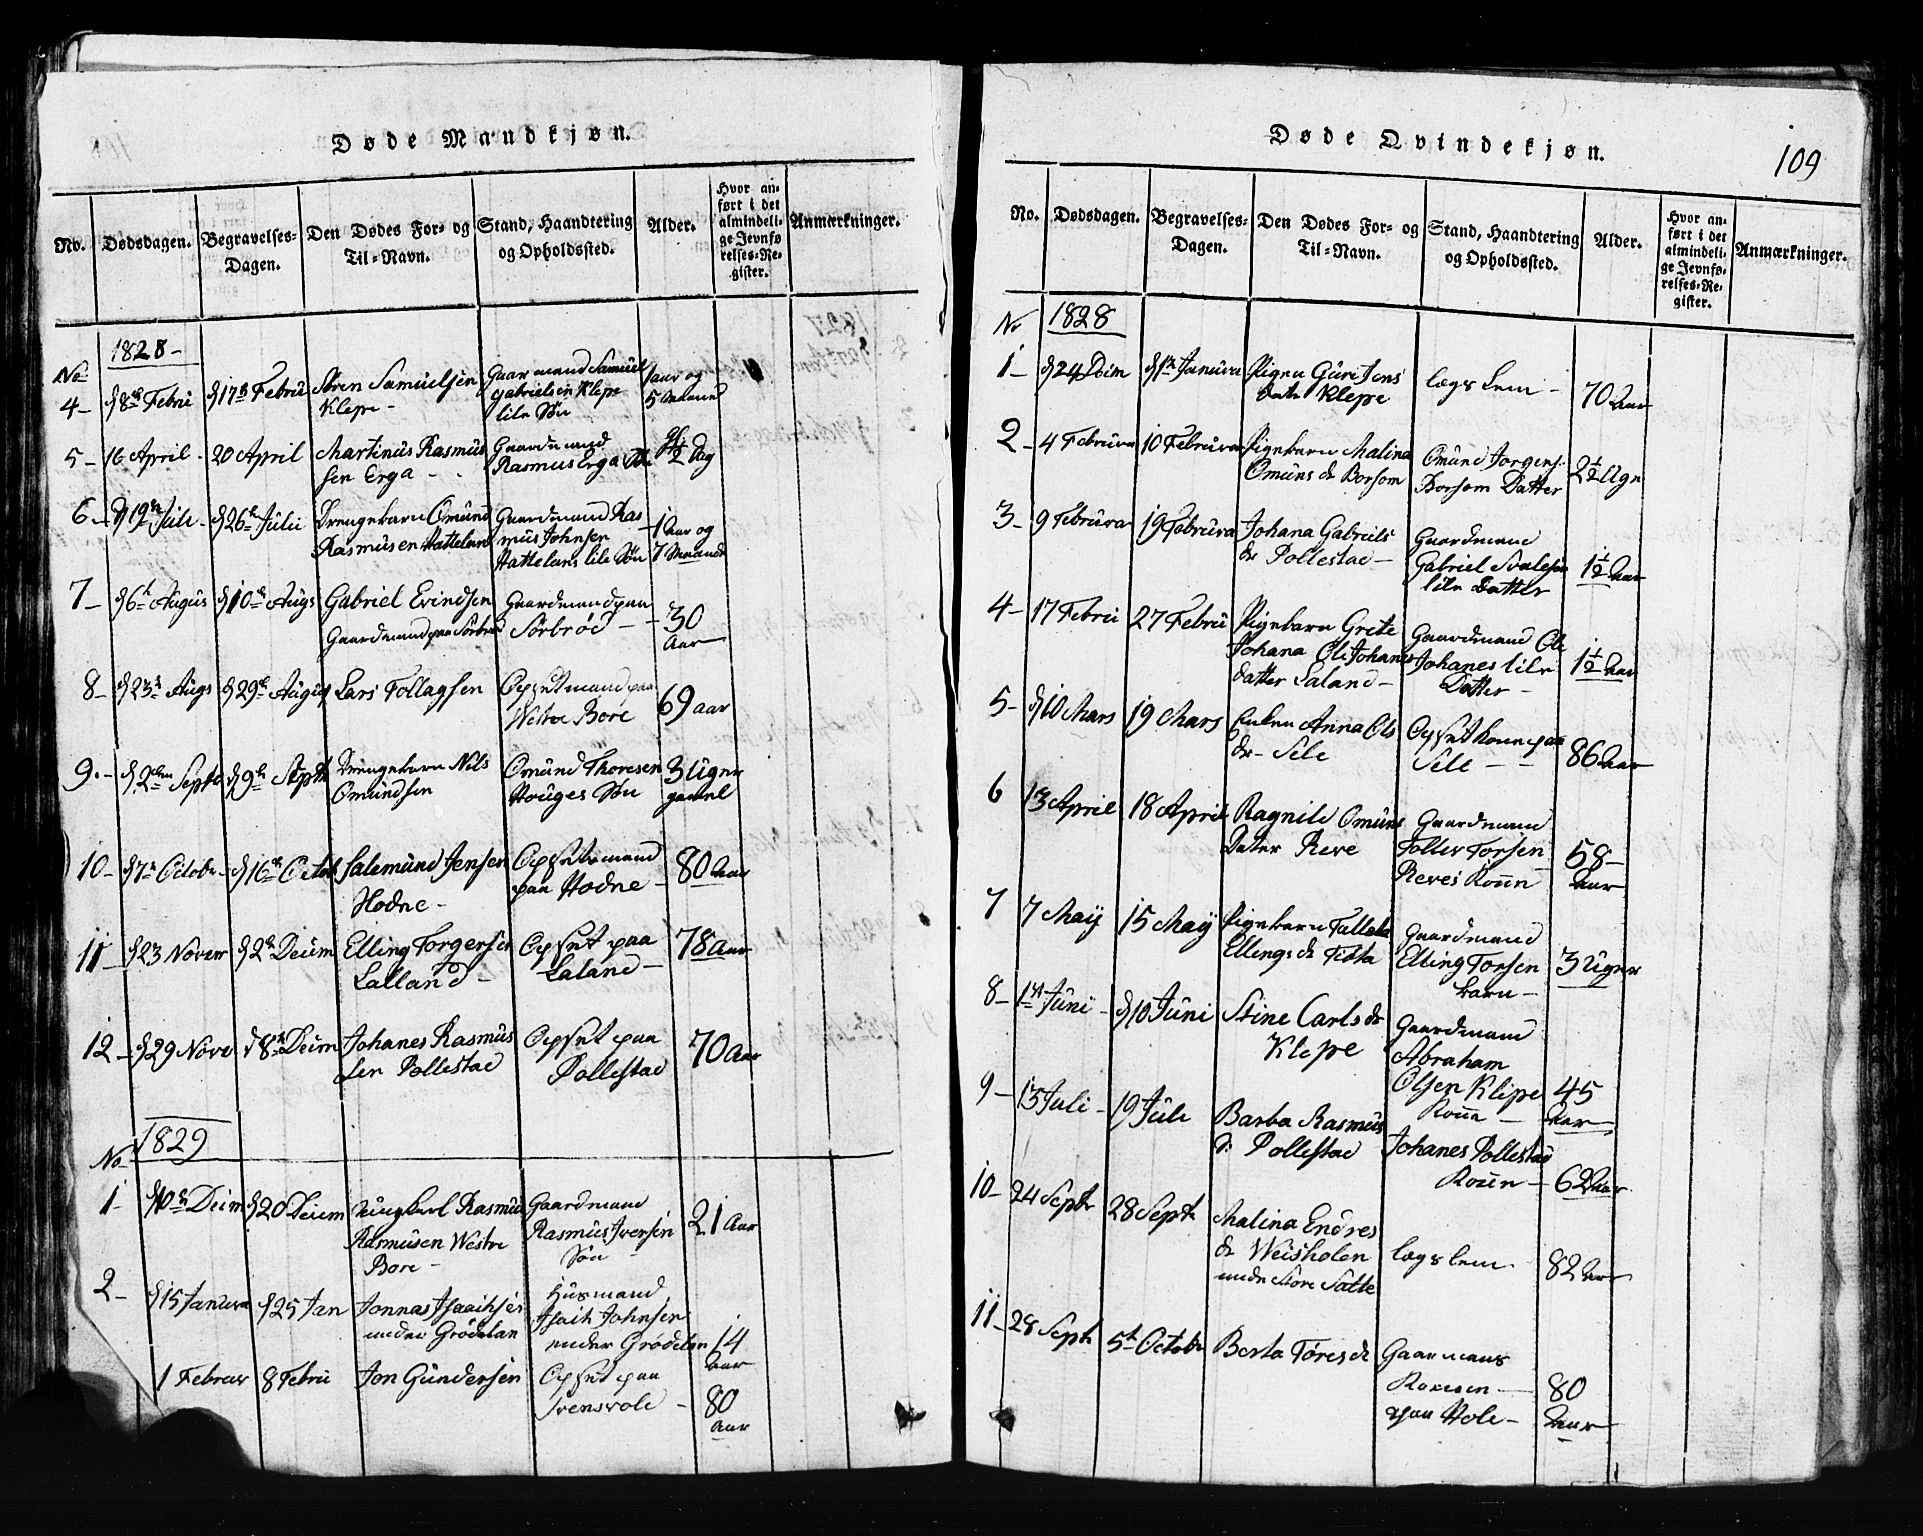 Døde Mandkjøn.
No.
Dødsdagen.
Begravelses-
Dagen.
Den Dødes For- og
Til-Navn.
Stand, Haandtering
og Opholdssted.
Alder.
Hvor an-
ført i det
almindeli-
ge Jevnfø
relses-Re-
gister.
Anmærkninger.
1828-
No
4-
8de Febru
17de Febru
Søren Samuelsen
Klepe-
Gaarmand Samuel
Gabrielsen Klepe
lile Søn
1 aar og
5 Maaned
5-
16 April-
20 April
Martinus Rasmus
sen Erga
Gaardmand
Rasmus Erga
1/2 Dag
6-
d 19de Juli-
d 26de Julii
Drengebarn Omund
Rasmusen Hatteland
Gaardmand Ras
mus Johnsen
Hattelans lile Søn
1 Aar og
7 Maaned
7-
d 6te Augus
d 10de Augs
Gabriel Evindsen
Gaardmand paa Sörbröe
Gaardmand paa
Sörbröe
30
Aar
8-
d 23de Augs
d 29de August
Lars Tollagsen
Opsetmand paa
Westre Bore
69 aar
9.-
d 2den Septr
d 9de Septbr
Drengebarn Nils
Omundsen
Omund Thoresen
Houges Søn
3 Uger
gamel
10-
d 7de Octobr-
d 16de Octob
Salemund Jensen
Hodne-
Opsetsmand
paa Hodne-
80 Aar
11-
d 23 Novem
d 2de Decem
Elling Torgersen
Lalland-
Opset paa
Laland-
78 Aar
12-
d 29 Nove
d 8de Decem
Johanes Rasmus
sen Pollestad
Opset paa
Pollestad
70 Aar
1829
No
1-
d 10de Decem
d 20 Decem
Ungkarl Rasmus
Rasmusen Westre
Bore-
Gaardmand
Rasmus Iversen
Søn
21 Aar
2-
d 15 Janura
d 25 Jan
Jonnas Isaichsen
under Grödelan
Husmand
Isaik Johnsen
under Grödelan
14
Aar
1 Februar
8 Febru
Jon Gundersen
Opset paa
80
Aar
Døde Qvindekjøn.
109
No.
Dødsdagen.
Begravelses-
Dagen.
Den Dødes For- og
Til-Navn.
Stand, Haandtering
og Opholdssted.
Alder.
Hvor an-
ført i det
almindeli-
ge Jevnfø-
relses-Re-
gister.
Anmærkninger.
No
1828
1-
d 24
d 1te Janura
Pigen Guri Jens
datr Klepe
lægs Lem-
70 Aar
2-
4 Februra
10 Februra
Pigebarn Malina
Omuns dr Borsom
Omund Jorgens
Borsom Datter
2 1/2 Uge
3-
9 Februra
19 Februra
Johana Gabriels
dr Pollestad-
Gaardmand
Gabriel
lile Datter
1 1/2 Aar
4-
17 Febru
27 Febru
Pigebarn Grete
Johana Ole Johanes
datter Saland-
Gaardmand Ole
Johanes lile
Datter-
1 1/2 Aar
5-
d 10 Mars
19 Mars
Enken Anna Ols
dr- Sele
Opset Kone paa
Sele
86 Aar
6
13 April
18 April
Ragnile Omuns
Dater Reve
Gaardmand
Toller Torsen
Reves Konn
58-
Aar
7
7 Maij
15 Maij
Pigebarn
Ellings dr
Gaardmand
Elling Torsen
barn-
3 Uger
8-
1st Juni-
d 10 Juni
Stine Carls dr
Klepe
Gaardmand
Abraham
Olsen Klepe
Konn
45
Aar
9-
13 Juli-
19 Jule
Barba Rasmus
dr Pollestad
Johanes Pollestad
Konn-
62 Aar
10-
24 Septr
28 Septr
Malina Endres
dr Weisholen
unde Store Salte
lægs lem
82 Aar
11-
28 Septr
5t Octobr
Berta Tores dr
Gaarmans
paa Hole-
80
Aar